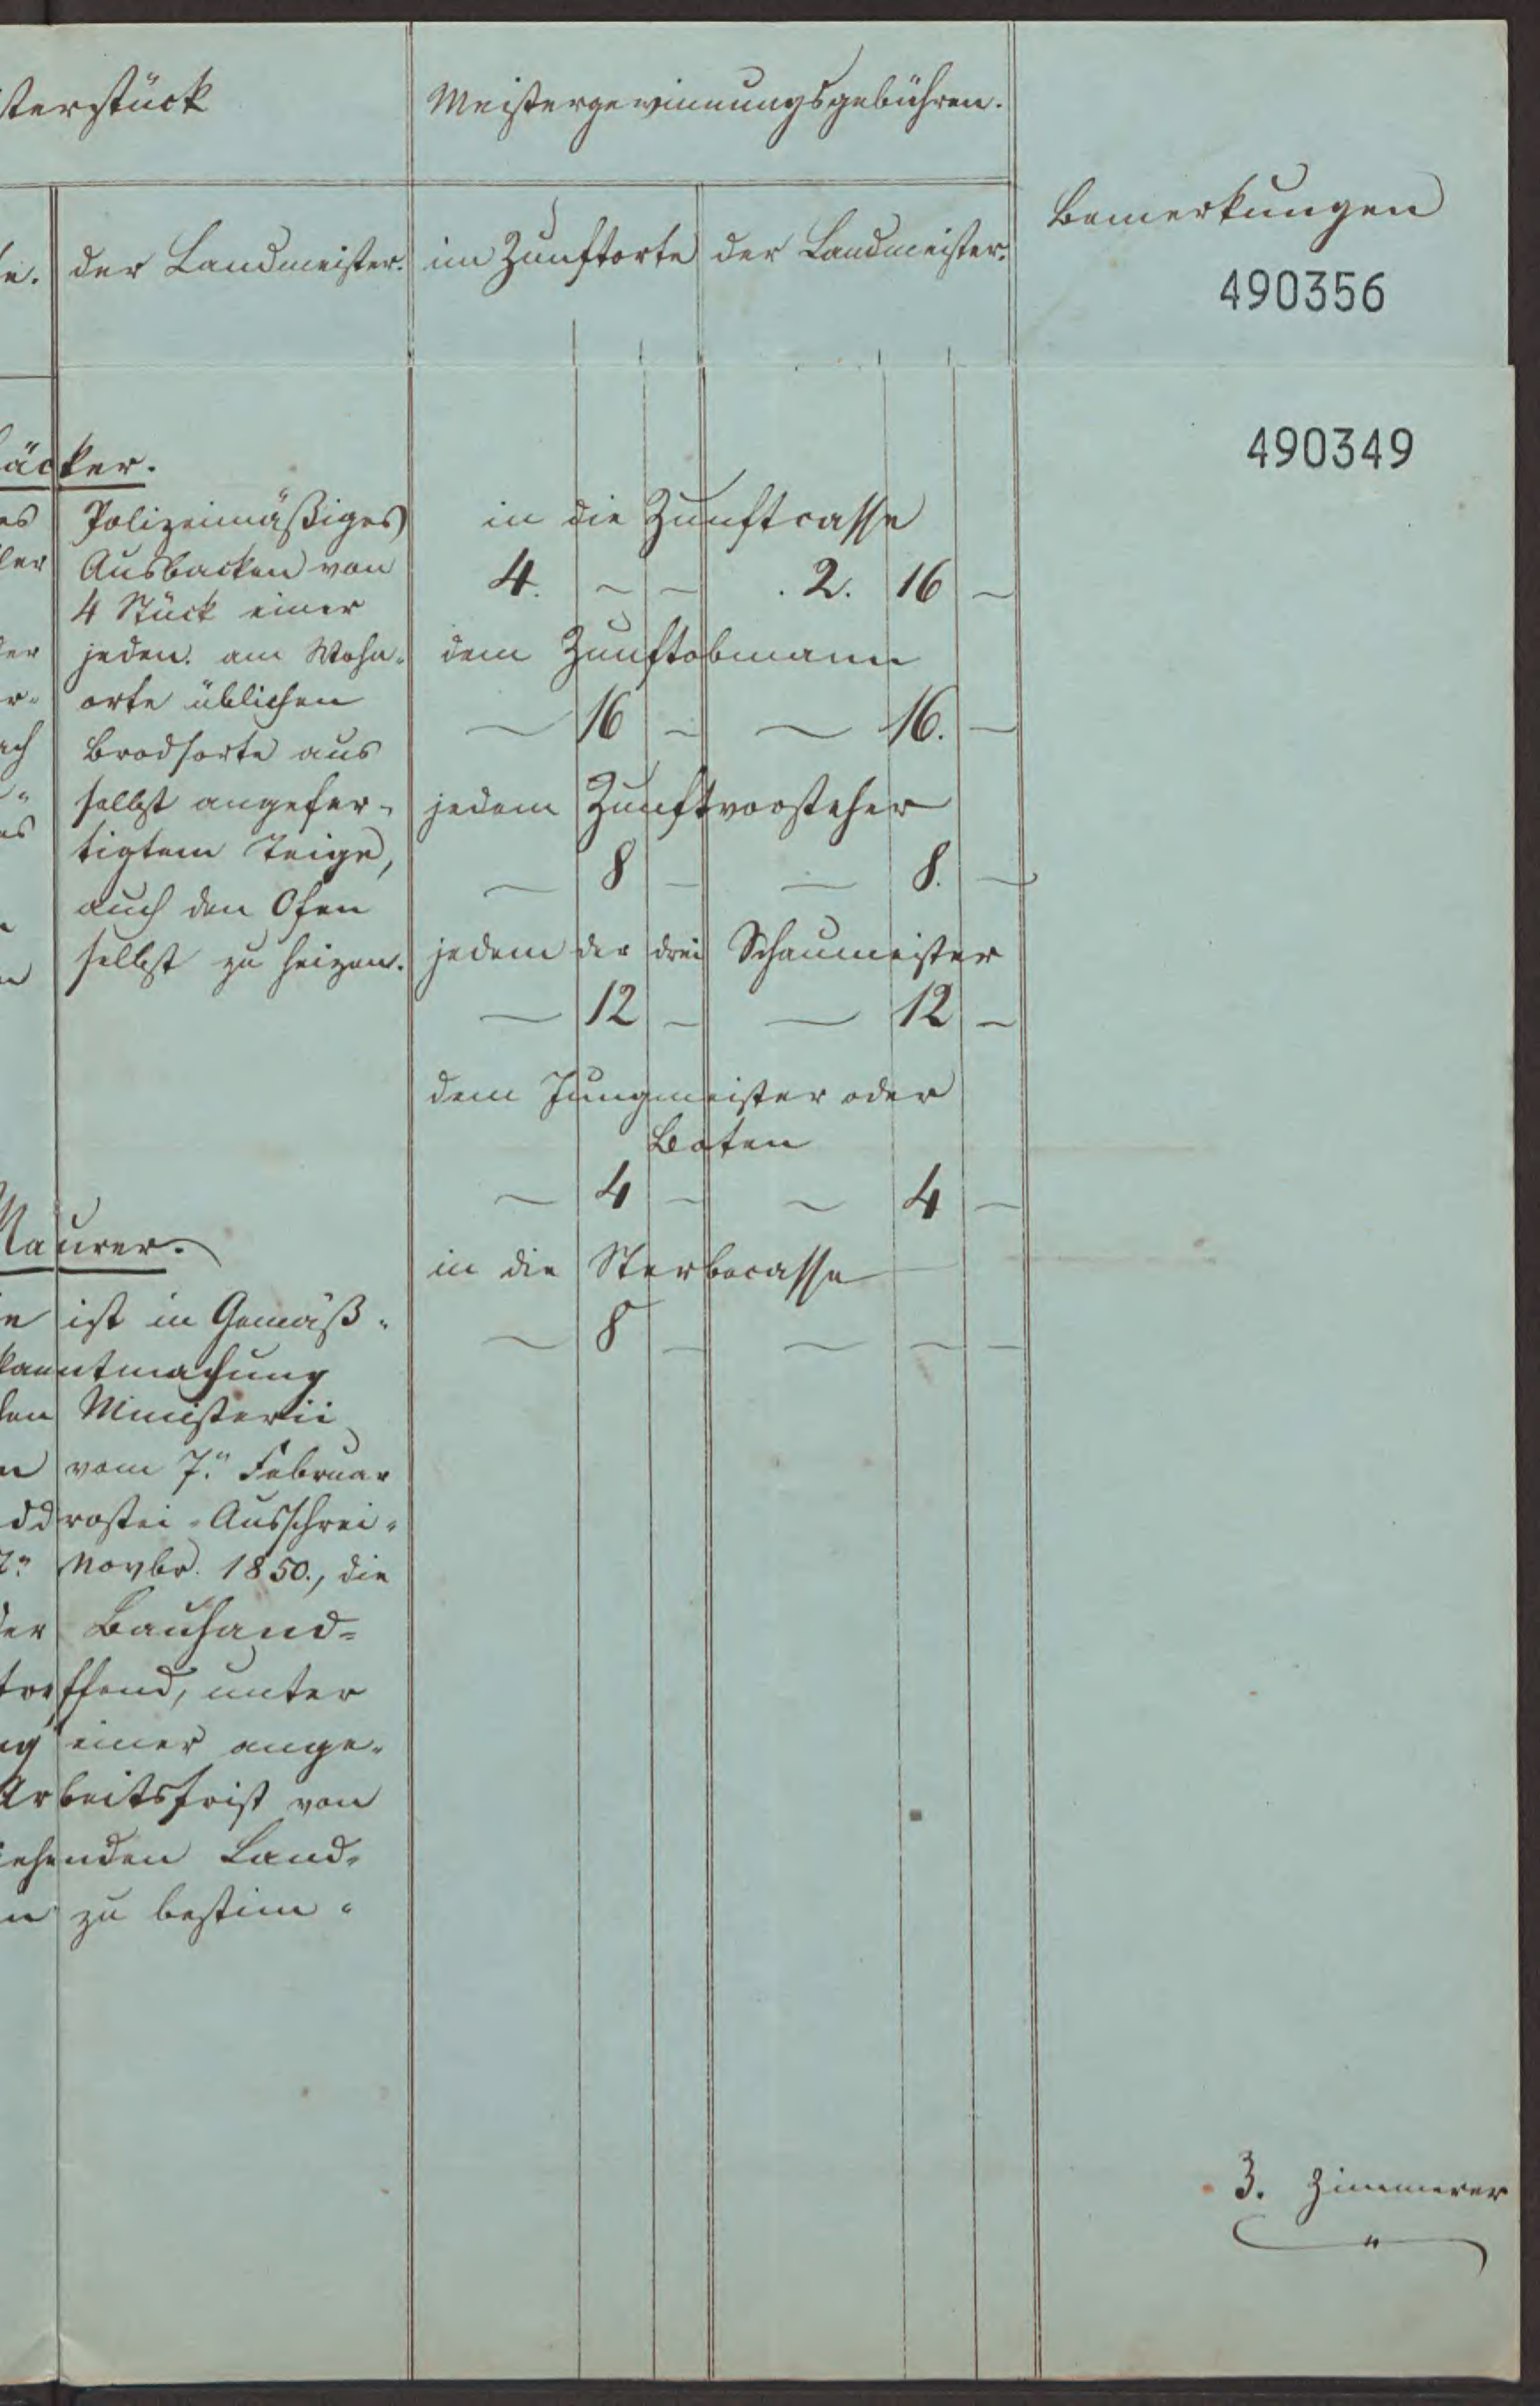 sterstück
Meistergewinnungsgebühren.
Bemerkungen
der Landmeister.
im Zunftorte
der Landmeister.
490356
490349
äcker.
Polizeimäßiges
Ausbacken von
4 Stück einer
jeden am Wohn-
orte üblichen
Brodsorte aus
selbst angefer-
tigtem Teige,
auch den Ofen
selbst zu heizen.
in die Zunftcasse
4. – – . 2. 16 –
dem Zunftobmann
– 16 – – 16. –
jedem Zunftvorsteher
– 8 – – 8. –
jedem der drei Schaumeister
– 12 – – 12 –
dem Jungmeister oder
Boten
– 4 – – 4 –
in die Sterbecasse
– 8 – – – –
Maurer.
ist in Gemäß-
kanntmachung
Ministerii
vom 7. Februar
ddrostei-Ausschrei-
Novbr. 1850., die
Bauhand-
treffend, unter
einer ange-
Arbeitsfrist von
ehenden Land-
zu bestim-
3. Zimmerer